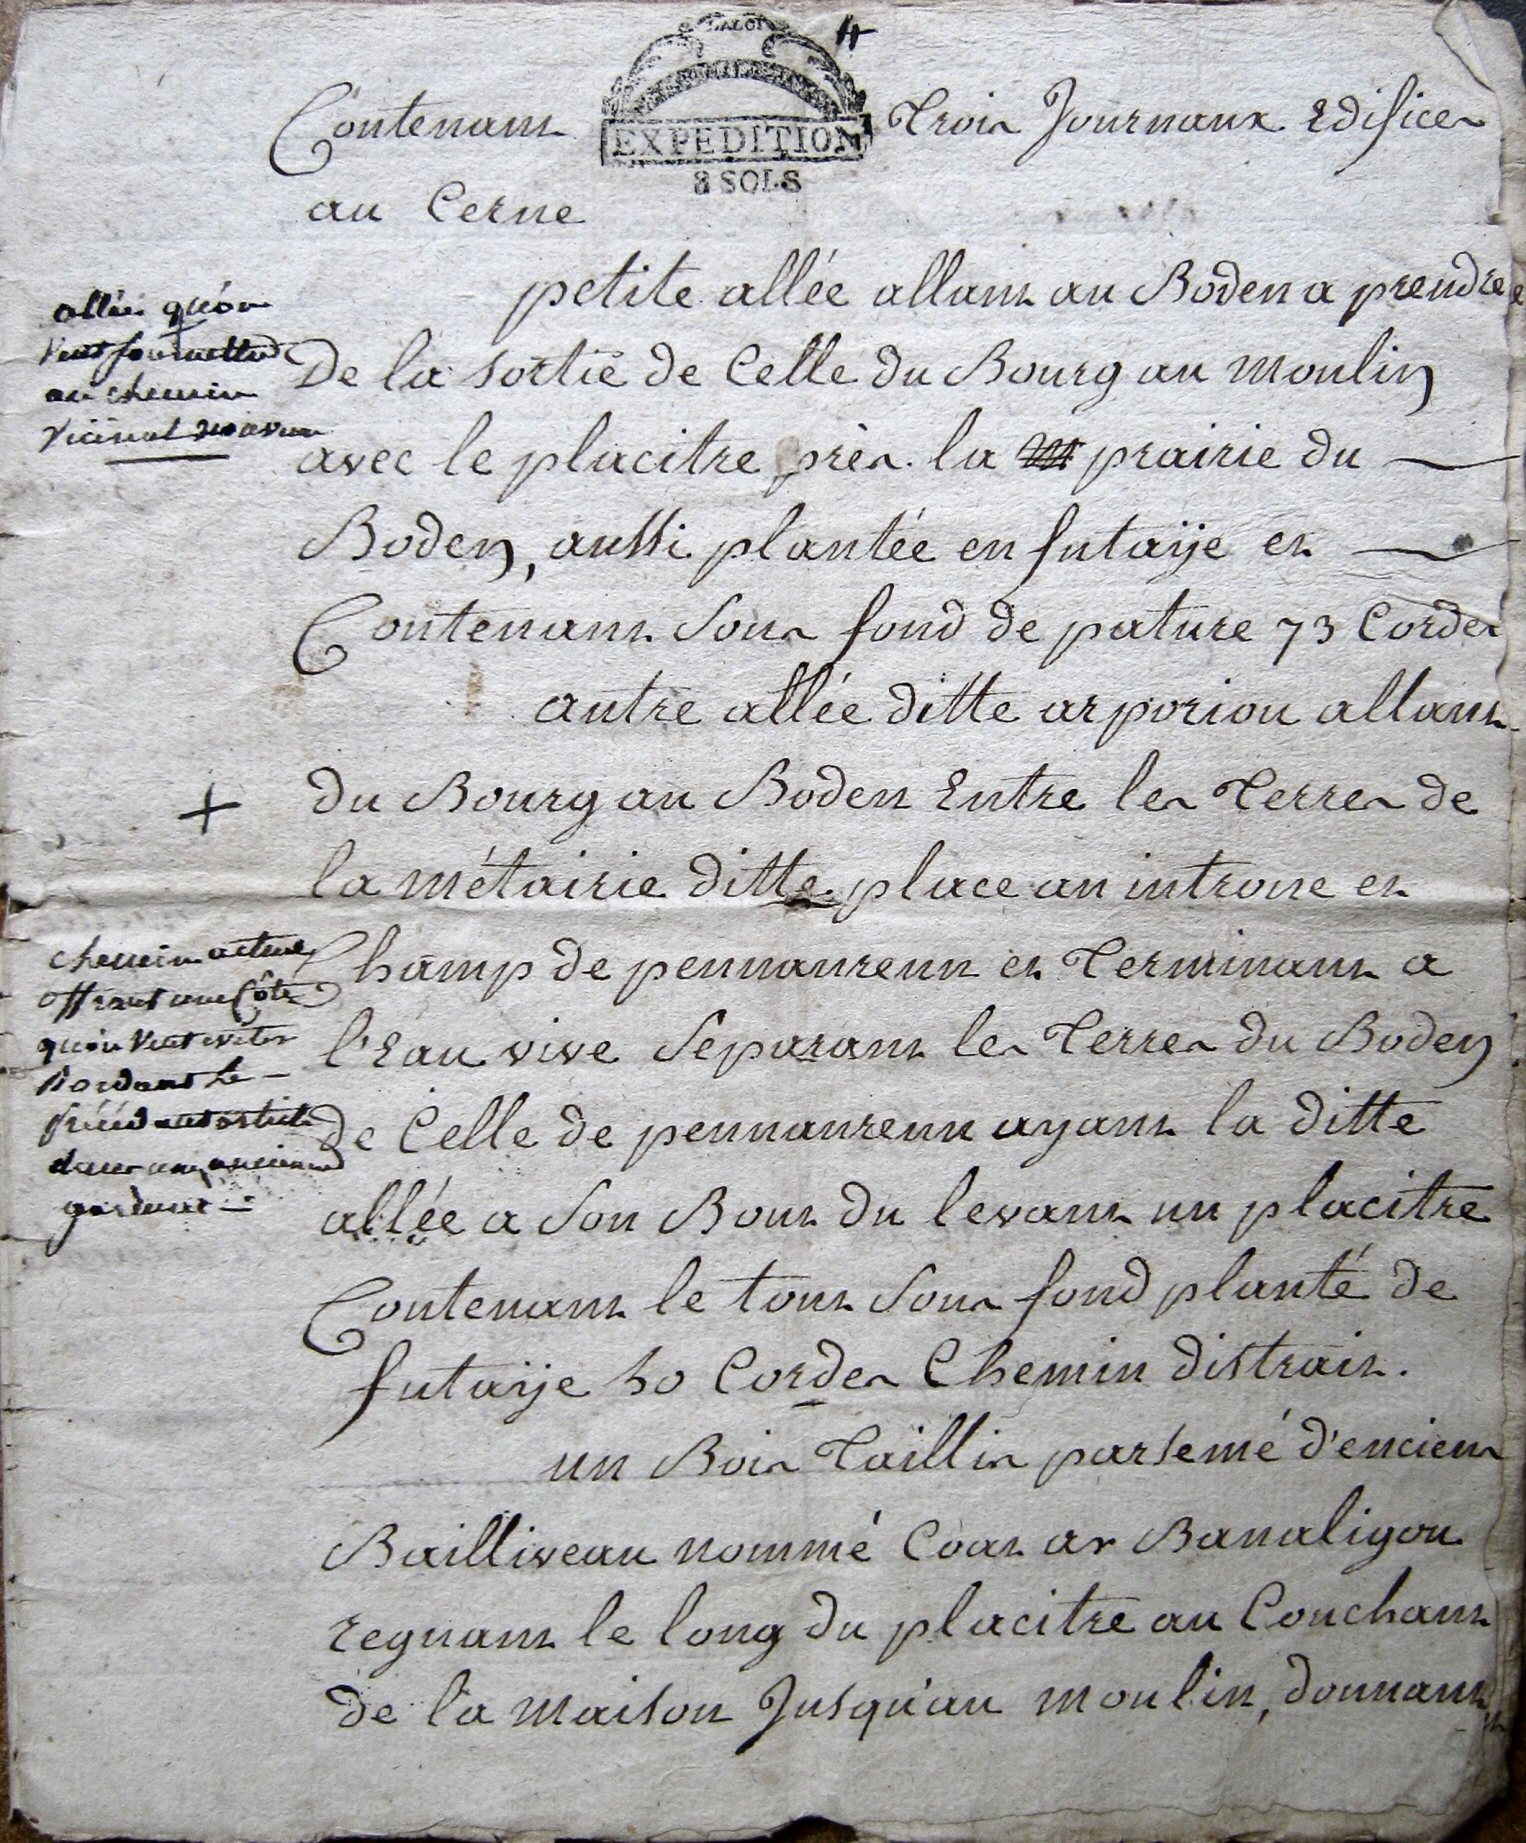 LA LOI
4
Contenant EXPEDITION Trois Journaux Edifices
8 SOLS
au Cerne
petite allée allant au Boden a prendre
De la sortie de Celle du Bourg au moulin
avec le placitre près la prairie du
Boden, aussi plantée en futaije et
Contenant Sous fond de pature 73 Cordes
autre allée ditte arporiou allant
du Bourg au Boden Entre les Terres de
la métairie ditte place an introne et
Champ de pennanrenn et Terminant a
l'Eau vive Separant les Terres du Boden
de Celle de pennanrenn ayant la ditte
allée a Son Bout du levant un placitre
Contenant le tout Sous fond planté de
futaije 50 Cordes Chemin distrait.
un Bois Taillis parsemé d'enciens
Bailliveau nommé Coat ar Banaligou
regnant le long du placitre au Couchant
de la maison Jusqu'au moulin, donnant
allée qu'on
veut soumettre
au chemin
vicinal
+
chemin actuel
offrant une Côte
qu'on veut eviter
Bordant le
précédent article